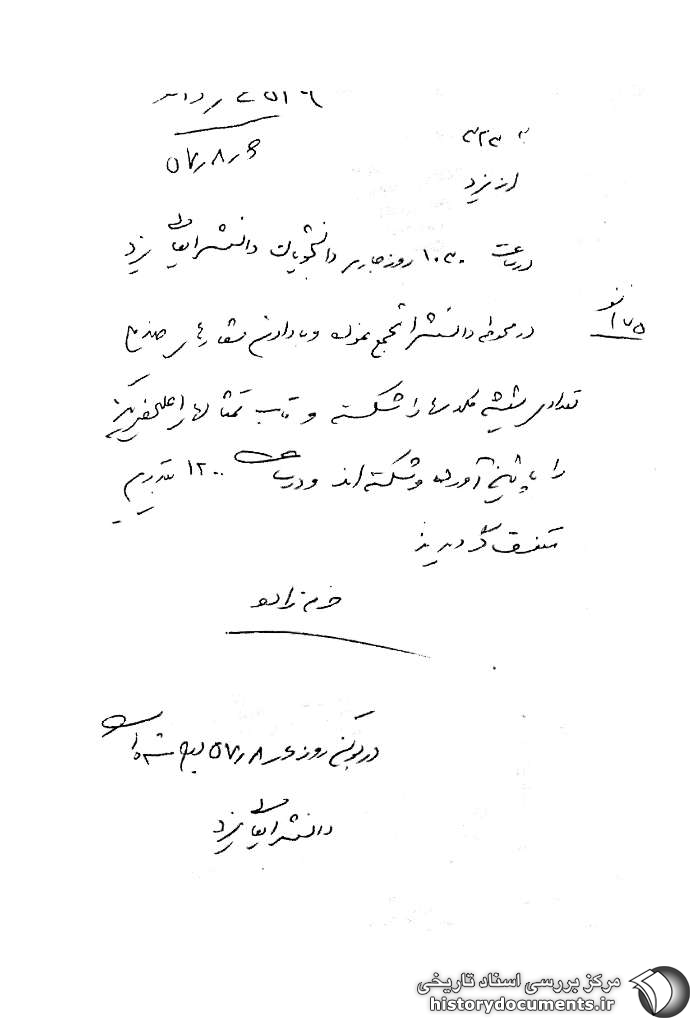 به ۳۲۳
از یزد
۵۷/۸/۶
در ساعت ۱۰۳۰ روز جاری دانشجویان دانشسرایعالی یزد
در محوطه دانشسرا تجمع نموده و با دادن شعارهای
تعدادی شیشه کلاسها را شکسته و قاب تمثالهای اعلیحضرتین
را پائین آورده و شکسته‌اند و در ساعت ۱۲۰۰ بتدریج
متفرق گردیدند
در بولتن روز ۵۷/۸/۶ درج شده است
دانشسرایعالی یزد
مرکز بررسی اسناد تاریخی
historydocuments.ir